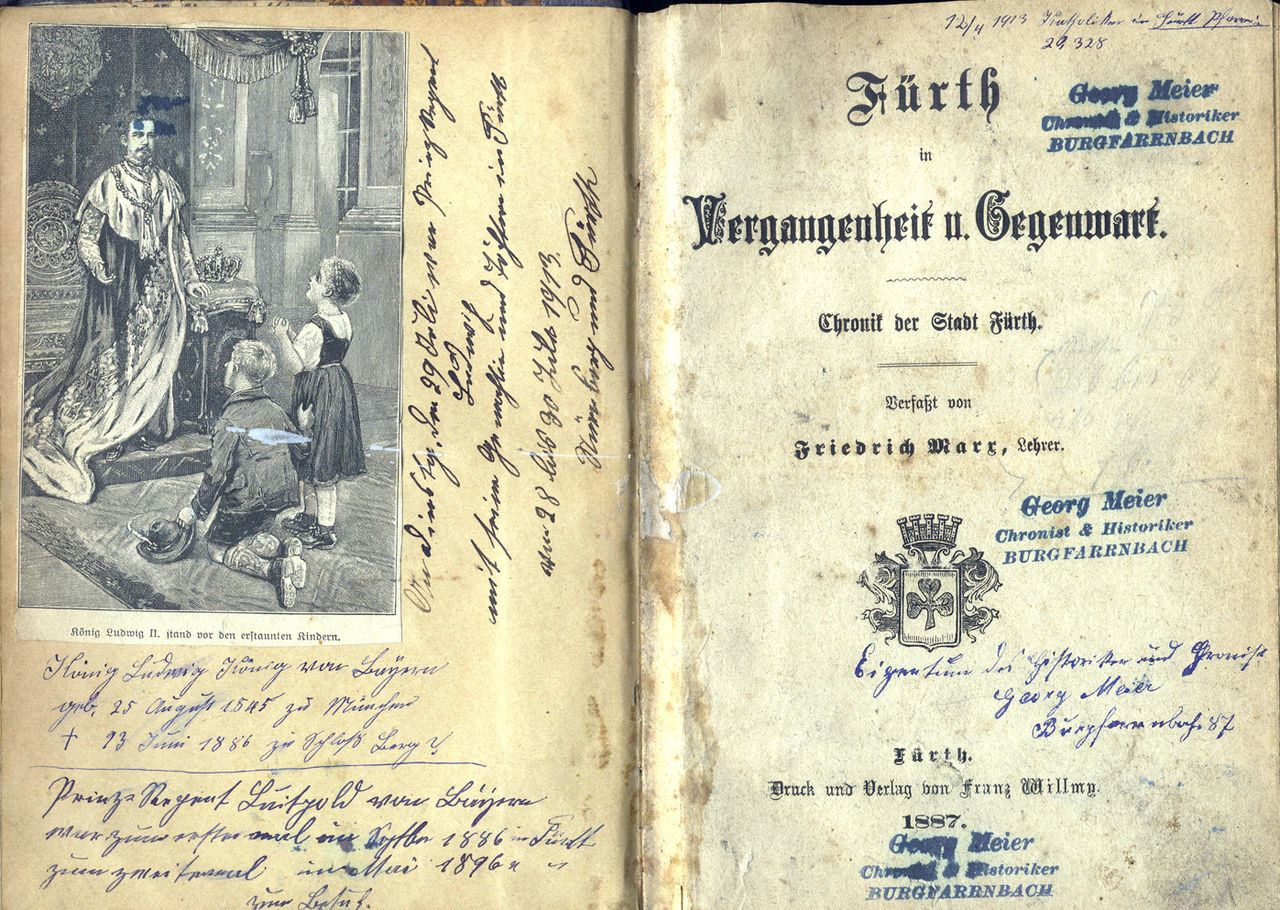 König Ludwig II. stand vor den erstaunten Kindern.
Am Dinstag, den 29 Juli war Prinz Regent
Ludwig
mit seine Gemahlin und Töchtern in Fürth
vom 28 bis 30 Juli 1913.
Nürnberg und Fürth
König Ludwig König von Bayern
geb. 25 August 1845 zu München
† 13 Juni 1886 zu Schloß Berg
Prinz-Regent Luitpold von Bayern
war zum ersten mal im Septbr 1886 in Fürth
zum zweitemal im Mai 1896 "
zum Besuch.
12/4 1913
29,328
Fürth
in
Vergangenheit u. Gegenwart.
Chronik der Stadt Fürth.
Verfaßt von
Friedrich Marx, Lehrer.
Georg Meier
Chronist & Historiker
BURGFARRNBACH
Georg Meier
Chronist & Historiker
BURGFARRNBACH
Eigentum des Historiker und Chronist
Georg Meier
Burgfarrnbach 87
Fürth.
Druck und Verlag von Franz Willmy.
1887.
Georg Meier
Chronist & Historiker
BURGFARRNBACH